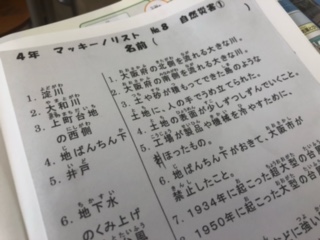 4年 マッキーノリスト №8 自然災害①
名前(
1. 淀川
2. 大和川
3. 上町台地
の西側
4. 地ばんちん下
5. 井戸
6. 地下水
のくみ上げ
1. 大阪府の北側を流れる大きな川。
2. 大阪府の南側を流れる大きな川。
3. 土や砂が積もってできた島のような
土地に、人の手でうめ立てられた。
4. 土地の表面が少しずつしずんでいくこと。
5. 工場が製品や機械を冷やすために、
ほったもの。
6. 地ばんちん下がおきて、大阪市が
禁止したこと。
7. 1934年に起こった超大型の台
8. 1950年に起こった大型の台